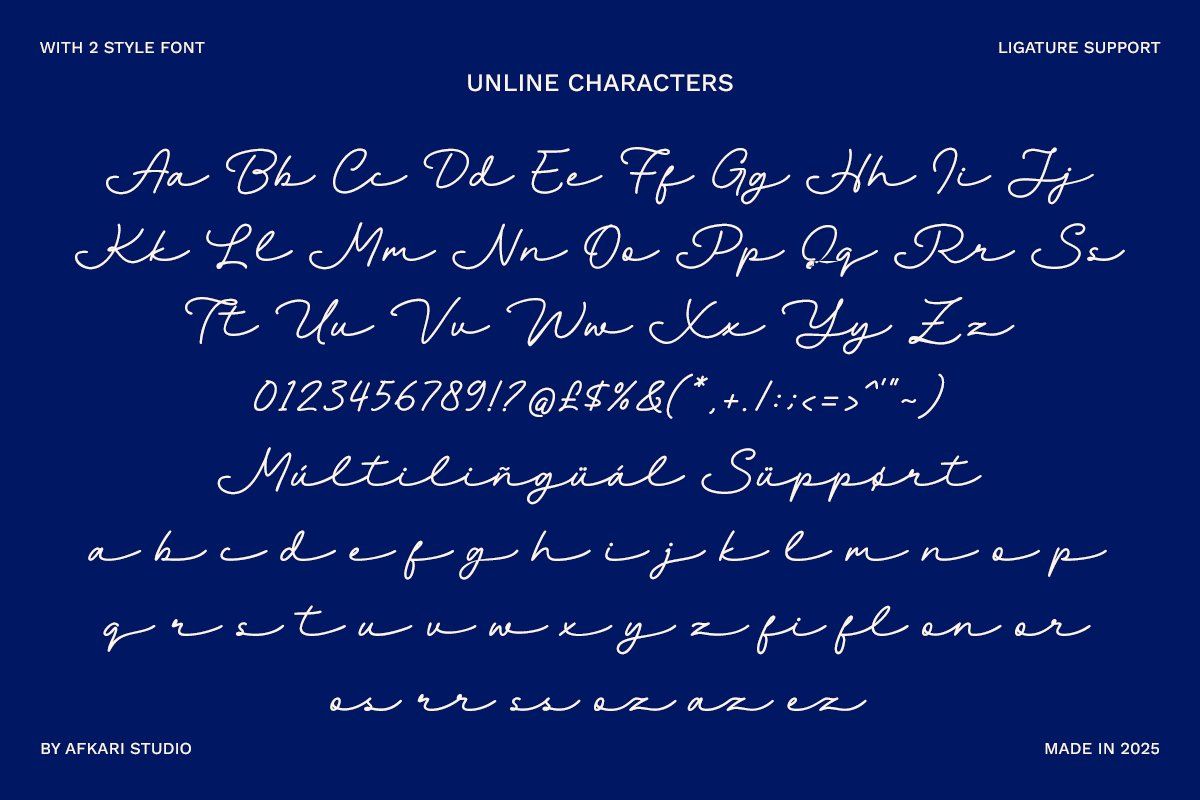 WITH 2 STYLE FONT
LIGATURE SUPPORT
UNLINE CHARACTERS
Aa Bb Cc Dd Ee Ff Gg Hh Ii Jj
Kk Ll Mm Nn Oo Pp Qq Rr Ss
Tt Uu Vv Ww Xx Yy Zz
0123456789!?@£$%&(*,+./:;<=>^'"~)
Múltiliñgüál Süppørt
a b c d e f g h i j k l m n o p
q r s t u v w x y z fi fl on or
os rr ss oz az ez
BY AFKARI STUDIO
MADE IN 2025